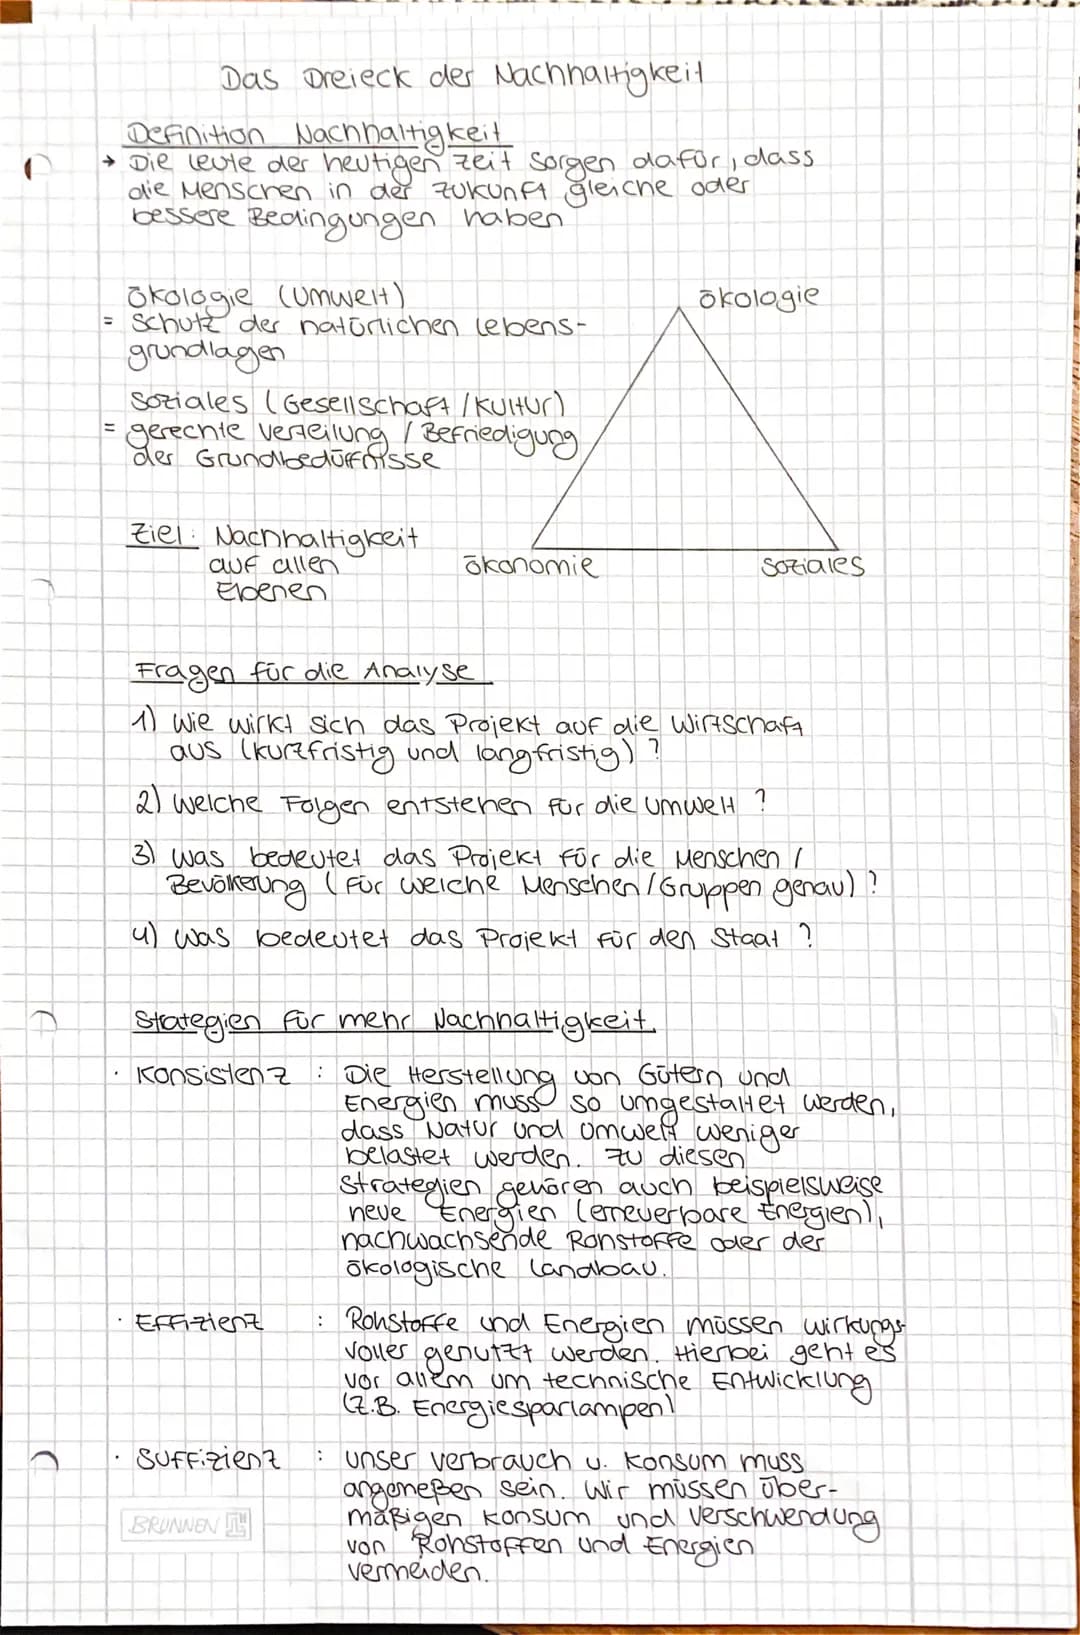 Das Dreieck der Nachhaltigkeit
Definition Nachhaltigkeit
→ Die Leute der heutigen Zeit sorgen dafür, dass
die Menschen in der Zukunft gleiche oder
bessere Bedingungen haben
Ökologie (Umwelt)
= Schutz der natürlichen Lebens-
grundlagen
Soziales (Gesellschaft / Kultur)
= gerechte Verteilung / Befriedigung
der Grundbedürfnisse
Ziel: Nachhaltigkeit
auf allen
Ebenen
Ökologie
Ökonomie
Soziales
Fragen für die Analyse
1) Wie wirkt sich das Projekt auf die Wirtschaft
aus (kurzfristig und langfristig)?
2) Welche Folgen entstehen für die Umwelt?
3) Was bedeutet das Projekt für die Menschen /
Bevölkerung (Für welche Menschen/Gruppen genau)?
4) Was bedeutet das Projekt für den Staat?
Strategien für mehr Nachhaltigkeit
· Konsistenz : Die Herstellung von Gütern und
Energien muss so umgestaltet werden,
dass Natur und Umwelt weniger
belastet werden. Zu diesen
Strategien gehören auch beispielsweise
neue Energien (erneuerbare Energien),
nachwachsende Rohstoffe oder der
ökologische Landbau.
· Effizienz : Rohstoffe und Energien müssen wirkungs-
voller genutzt werden. Hierbei geht es
vor allem um technische Entwicklung
(z.B. Energiesparlampen)
· Suffizienz : unser Verbrauch u. Konsum muss
angemeßen sein. Wir müssen über-
mäßigen Konsum und Verschwendung
von Rohstoffen und Energien
vermeiden.
BRUNNEN